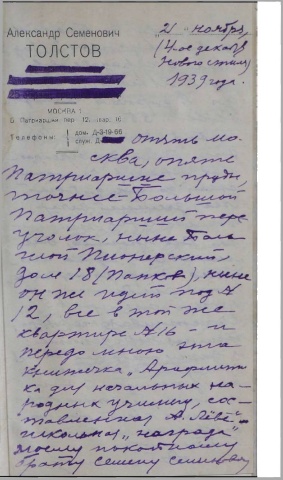 Александр Семенович
ТОЛСТОВ
МОСКВА 1
Б. Патриарши пер. 12, кар. 16
Телефоны: дом. Д-3-19-66
служ. Д
"21" ноября,
(4-ое декабря
Нового стиля)
1939 года.
Опять Мо-
сква, опять
Патриаршие пруды,
точнее Большой
Патриарший пере-
улочек, ныне Боль-
шой Пионерский,
дом 18 (Панков), ныне
он же идет под №
12, все в той же
квартире №16 - и
передо мною эта
книжечка "Арифмети-
ка для начальных на-
родных училищ, сос-
тавленная А. Леве" -
школьная "награда"
моему покойному
брату Семену Семеновичу